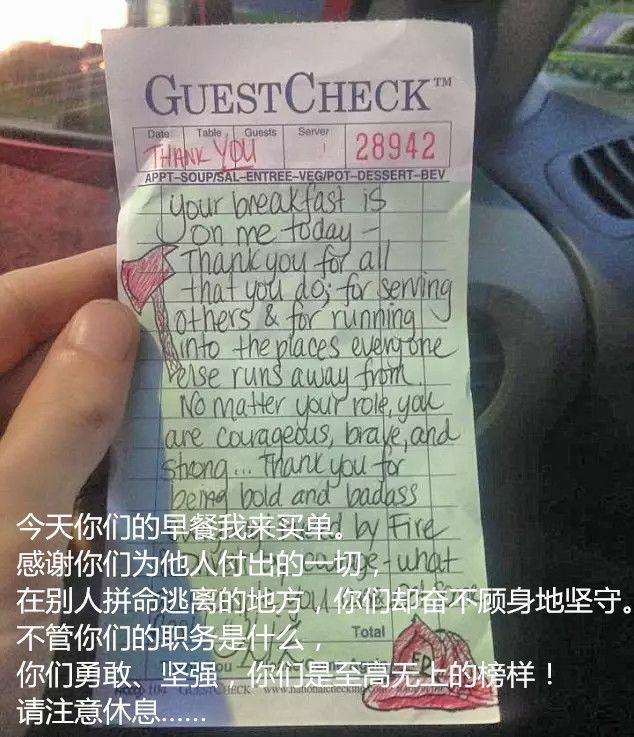 GUESTCHECK™
Date Table Guests Server
THANK YOU 28942
APPT–SOUP/SAL–ENTREE–VEG/POT–DESSERT–BEV
your breakfast is
on me today –
Thank you for all
that you do; for serving
others & for running
into the places everyone
else runs away from.
No matter your role, you
are courageous, brave, and
strong... Thank you for
being bold and badass
今天你们的早餐我来买单。
by Fire
感谢你们为他人付出的一切，
- what
在别人拼命逃离的地方，你们却奋不顾身地坚守。
不管你们的职务是什么，
Total
你们勇敢、坚强，你们是至高无上的榜样！
104 GUESTCHECK
请注意休息......